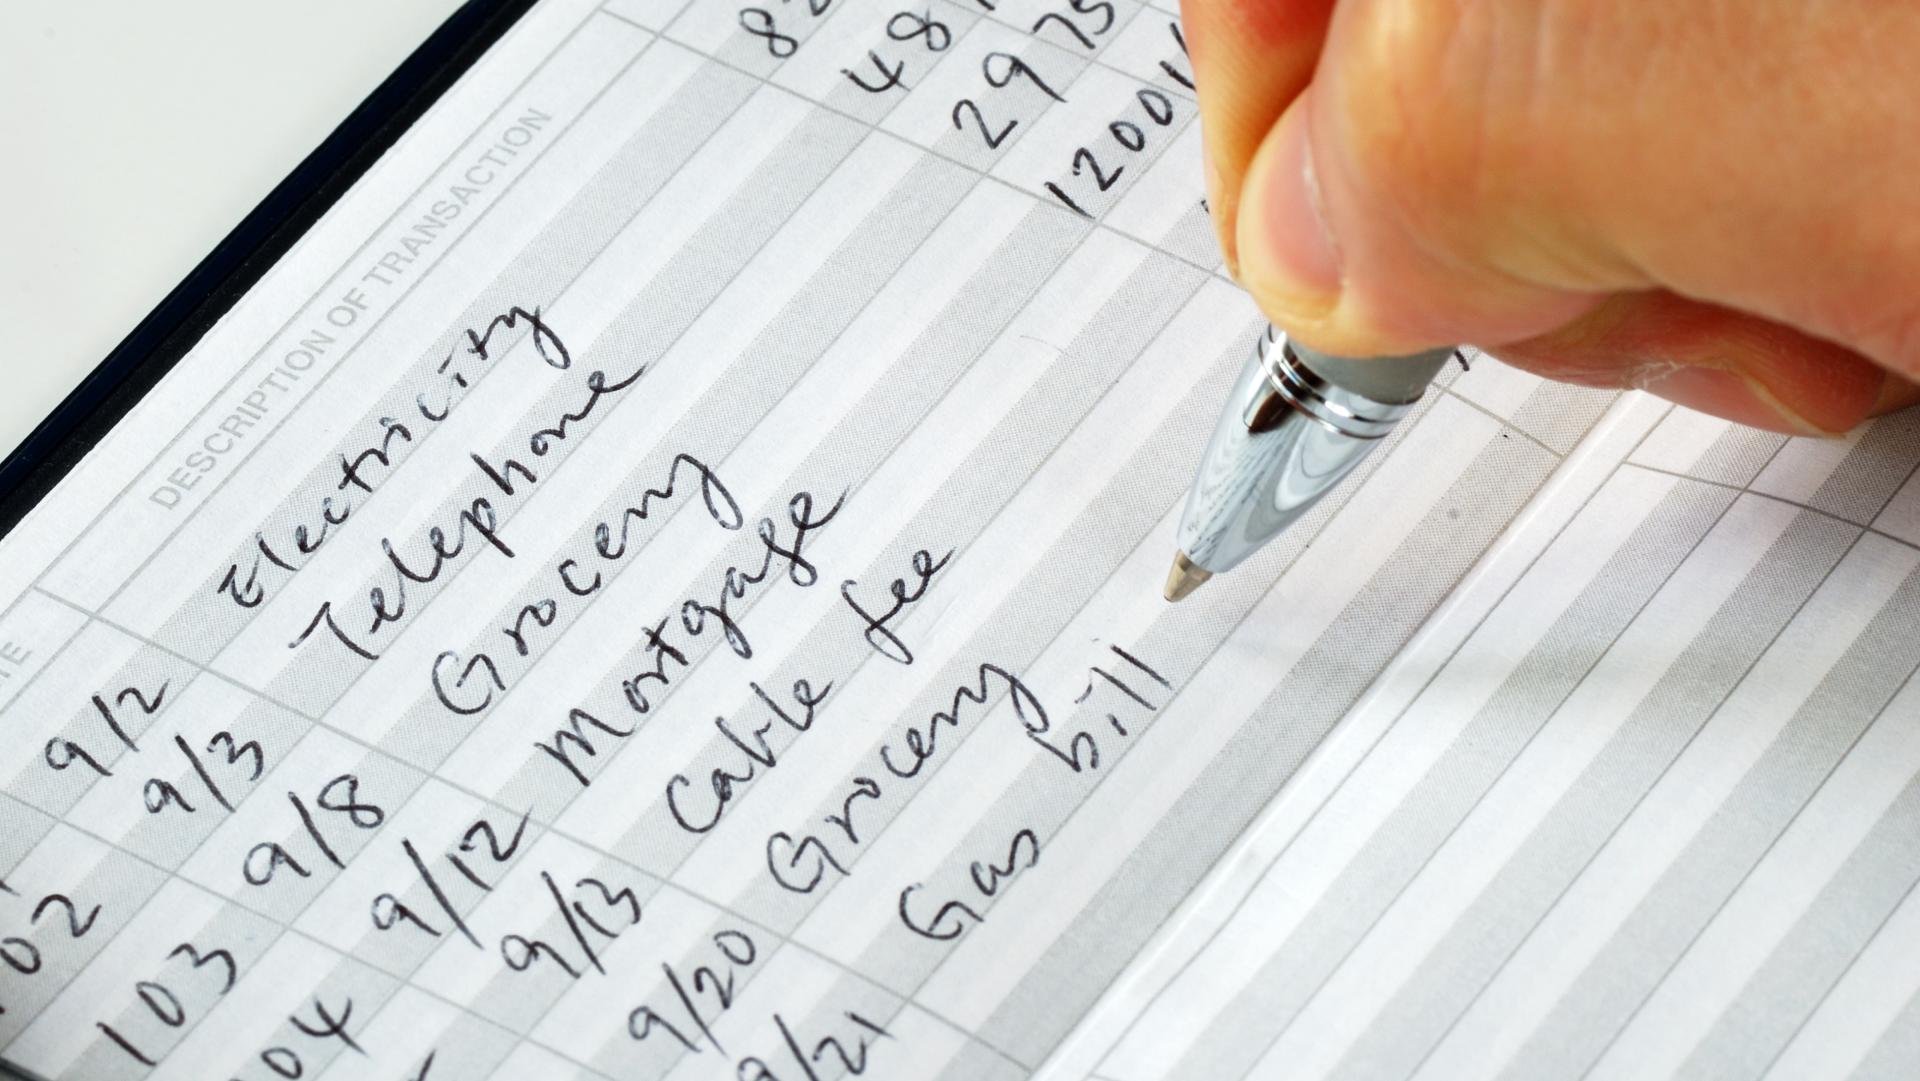 TE DESCRIPTION OF TRANSACTION
9/2 Electricity 82
02 9/3 Telephone 48
103 9/8 Grocery 29 75
04 9/12 Mortgage 1200
9/13 Cable fee
9/20 Grocery
9/21 Gas bill